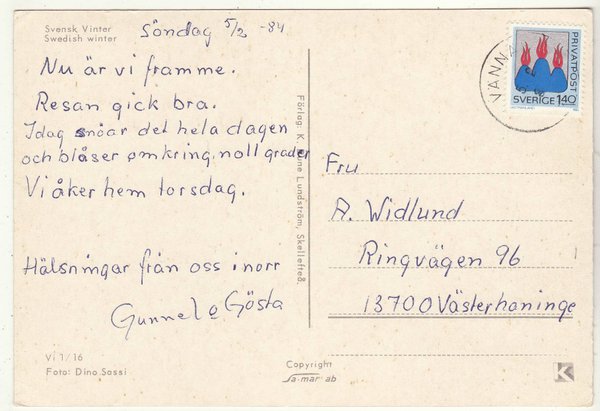 Svensk Vinter
Swedish winter
Söndag 5/2 -84
Nu är vi framme.
Resan gick bra.
Idag snöar det hela dagen
och blåser omkring noll grader
Vi åker hem torsdag.
Hälsningar från oss i norr
Gunnel o Gösta
Vi 1/16
Foto: Dino Sassi
Förlag: K. Lundström, Skellefteå
Copyright
sa-mar ab
PRIVATPOST
SVERIGE 140
VÄNNÄ
Fru
A. Widlund
Ringvägen 96
13700 Västerhaninge
K